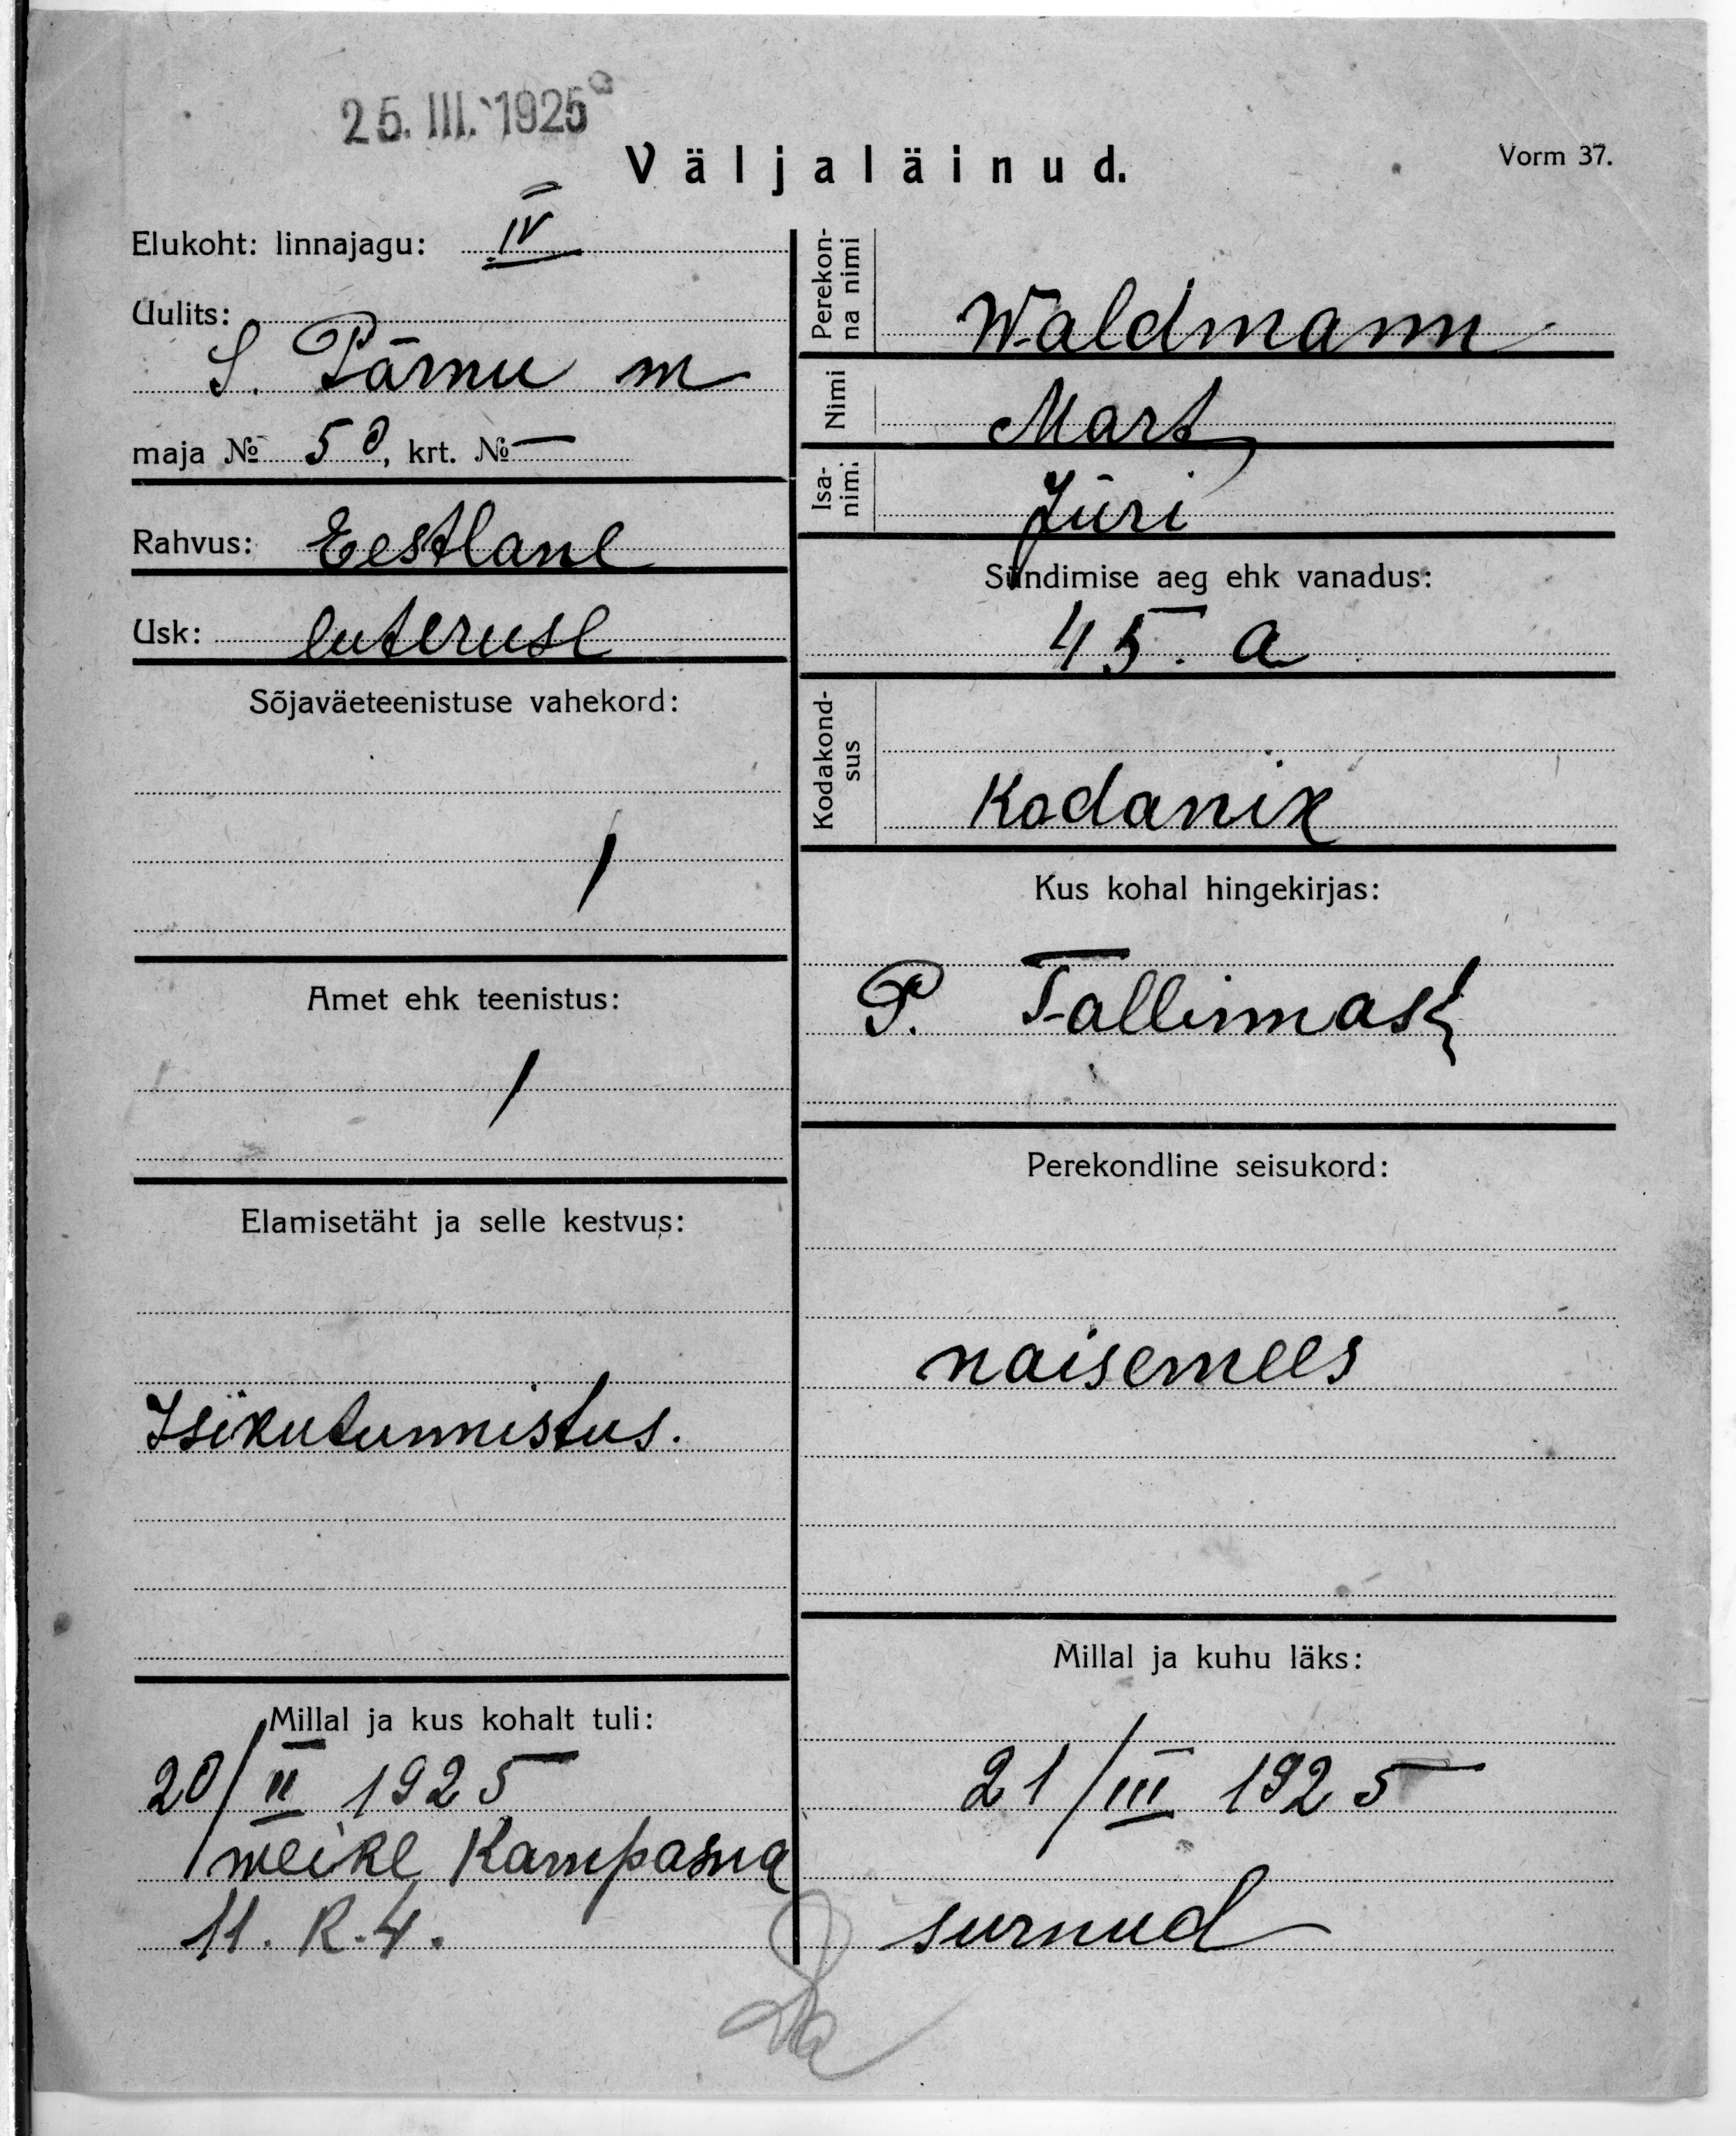 25. III. 1925
Väljaläinud.
Vorm 37.
Elukoht: linnajagu: IV
Uulits:
S. Pärnu m
maja № 50, krt. № —
Rahvus: Eestlane
Usk: luteruse
Sõjaväeteenistuse vahekord:
/
Amet ehk teenistus:
/
Elamisetäht ja selle kestvus:
Isikutunnistus.
Millal ja kus kohalt tuli:
20/II 1925
weike Kompasna
11. K. 4.
Perekon-
na nimi
Waldmann
Nimi
Mart
Isa-
nimi
Jüri
Sündimise aeg ehk vanadus:
45. a
Kodakond-
sus
Kodanik
Kus kohal hingekirjas:
P. Tallinnast
Perekondline seisukord:
naisemees
Millal ja kuhu läks:
21/III 1925
surnud